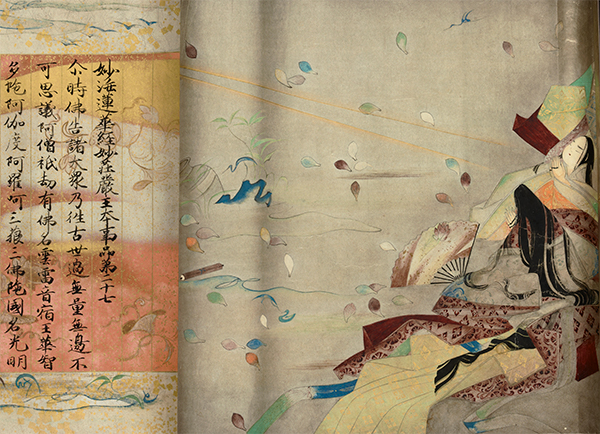 妙法蓮華經妙莊嚴王本事品第二十七
尒時佛告諸大衆乃往古世過無量無邊不
可思議阿僧祇劫有佛名雲雷音宿王華智
多陀阿伽度阿羅呵三藐三佛陀國名光明